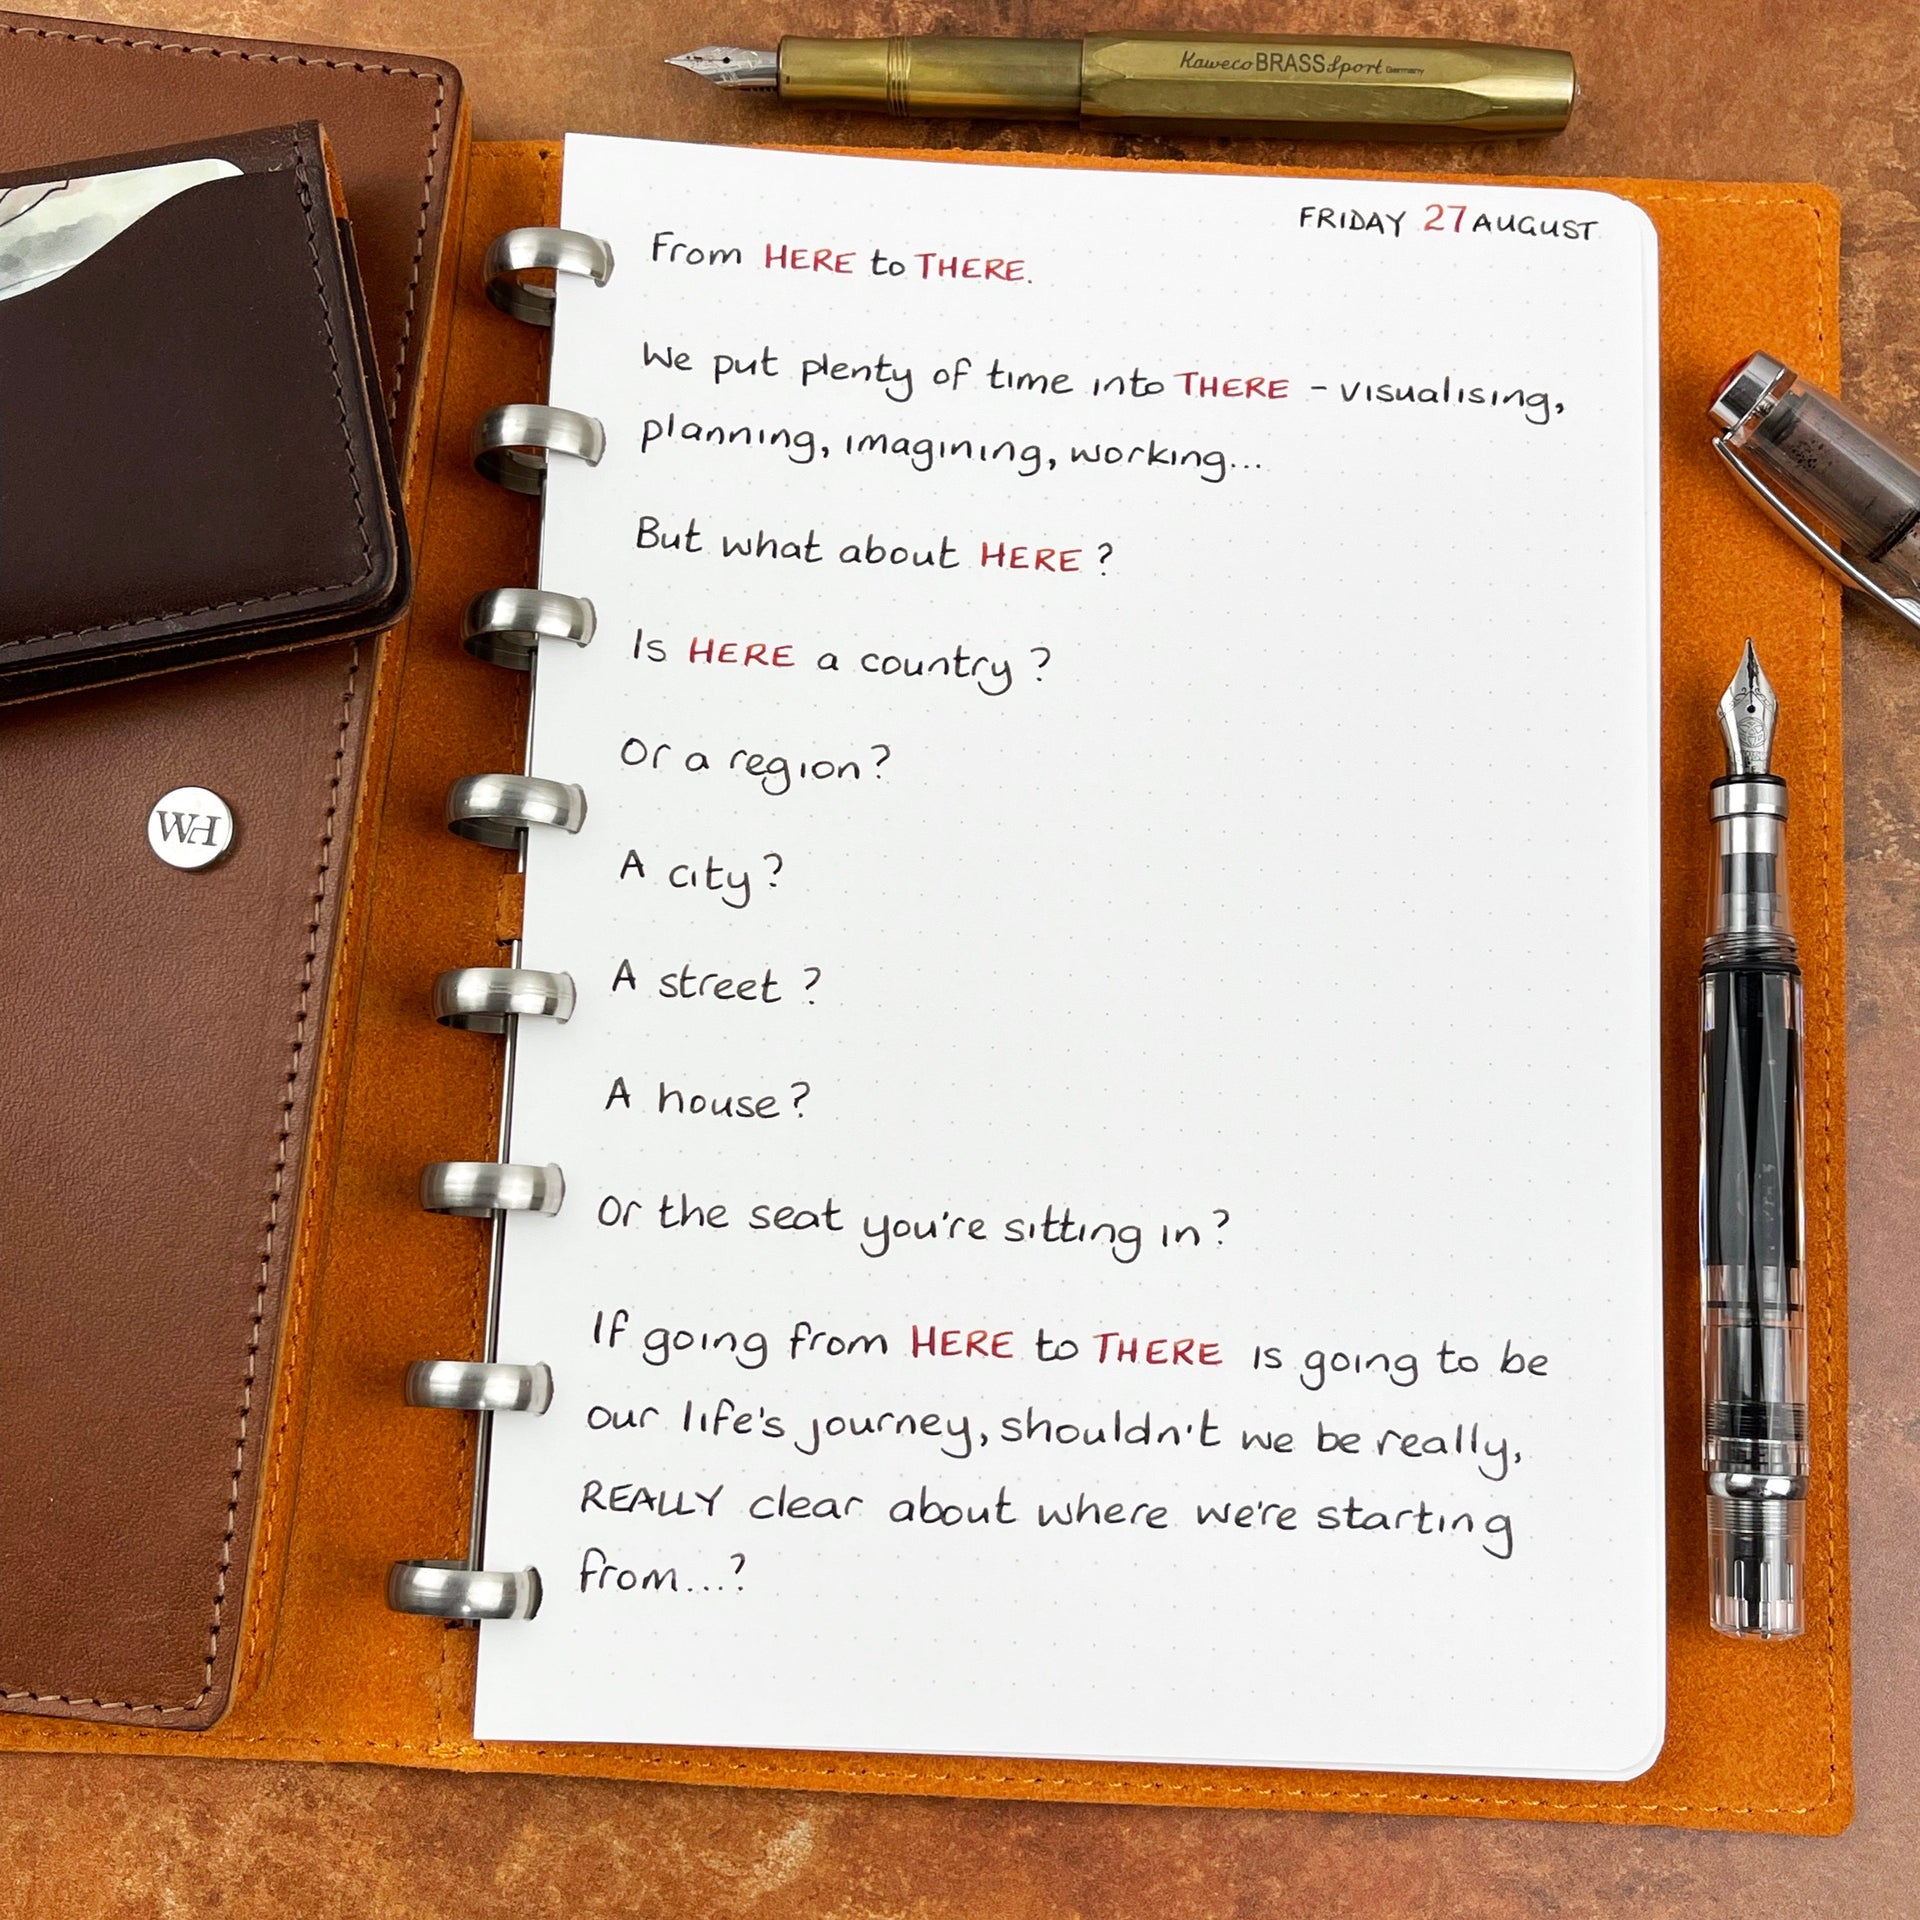 Kaweco BRASS Sport Germany
FRIDAY 27 AUGUST
From HERE to THERE.
We put plenty of time into THERE - visualising,
planning, imagining, working...
But what about HERE?
Is HERE a country?
Or a region?
A city?
A street?
A house?
Or the seat you're sitting in?
If going from HERE to THERE is going to be
our life's journey, shouldn't we be really,
REALLY clear about where we're starting
from...?
WH